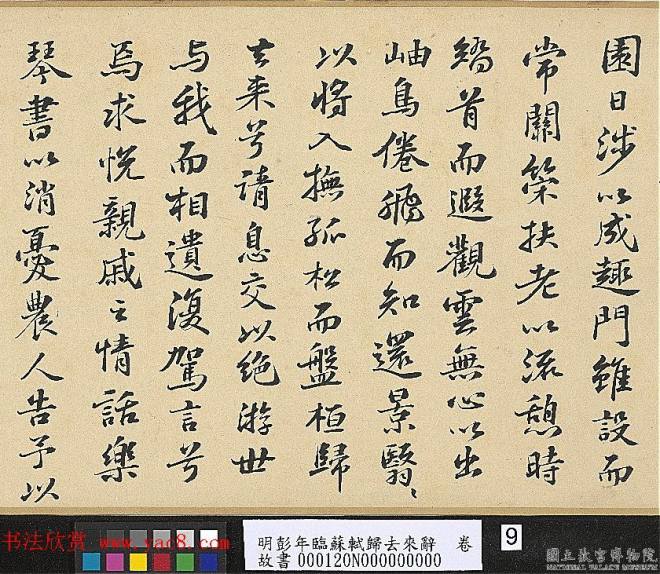 園日涉以成趣門雖設而
常關策扶老以流憩時
矯首而遐觀雲無心以出
岫鳥倦飛而知還景翳〻
以將入撫孤松而盤桓歸
去来兮請息交以絶游世
与我而相遺復駕言兮
焉求悦親戚之情話樂
琴書以消憂農人告予以
书法欣赏 www.yac8.com
明彭年臨蘇軾歸去來辭 卷
故書 000120N000000000
9
國立故宮博物院
NATIONAL PALACE MUSEUM